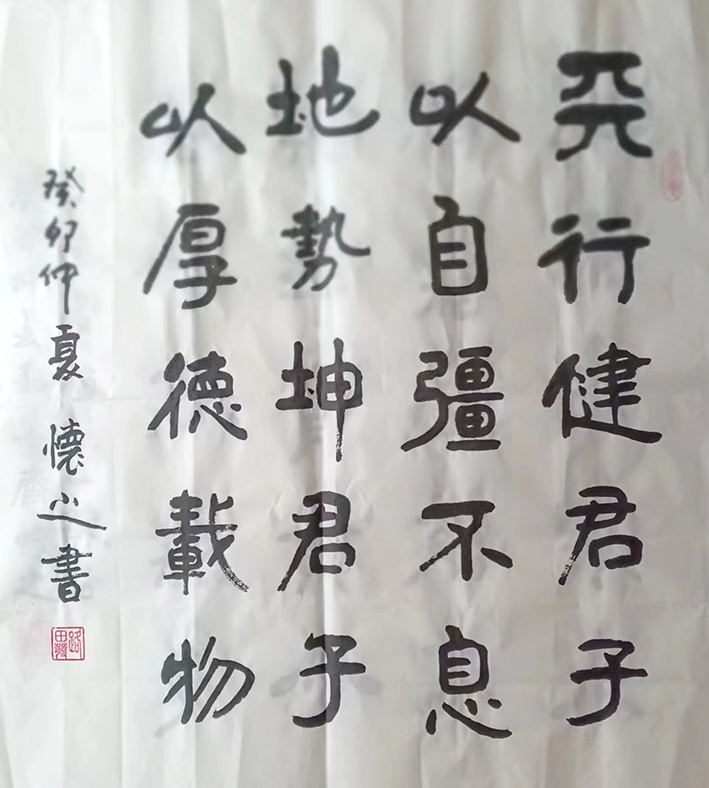 天行健君子
以自彊不息
地勢坤君子
以厚德載物
癸卯仲夏 懷之書